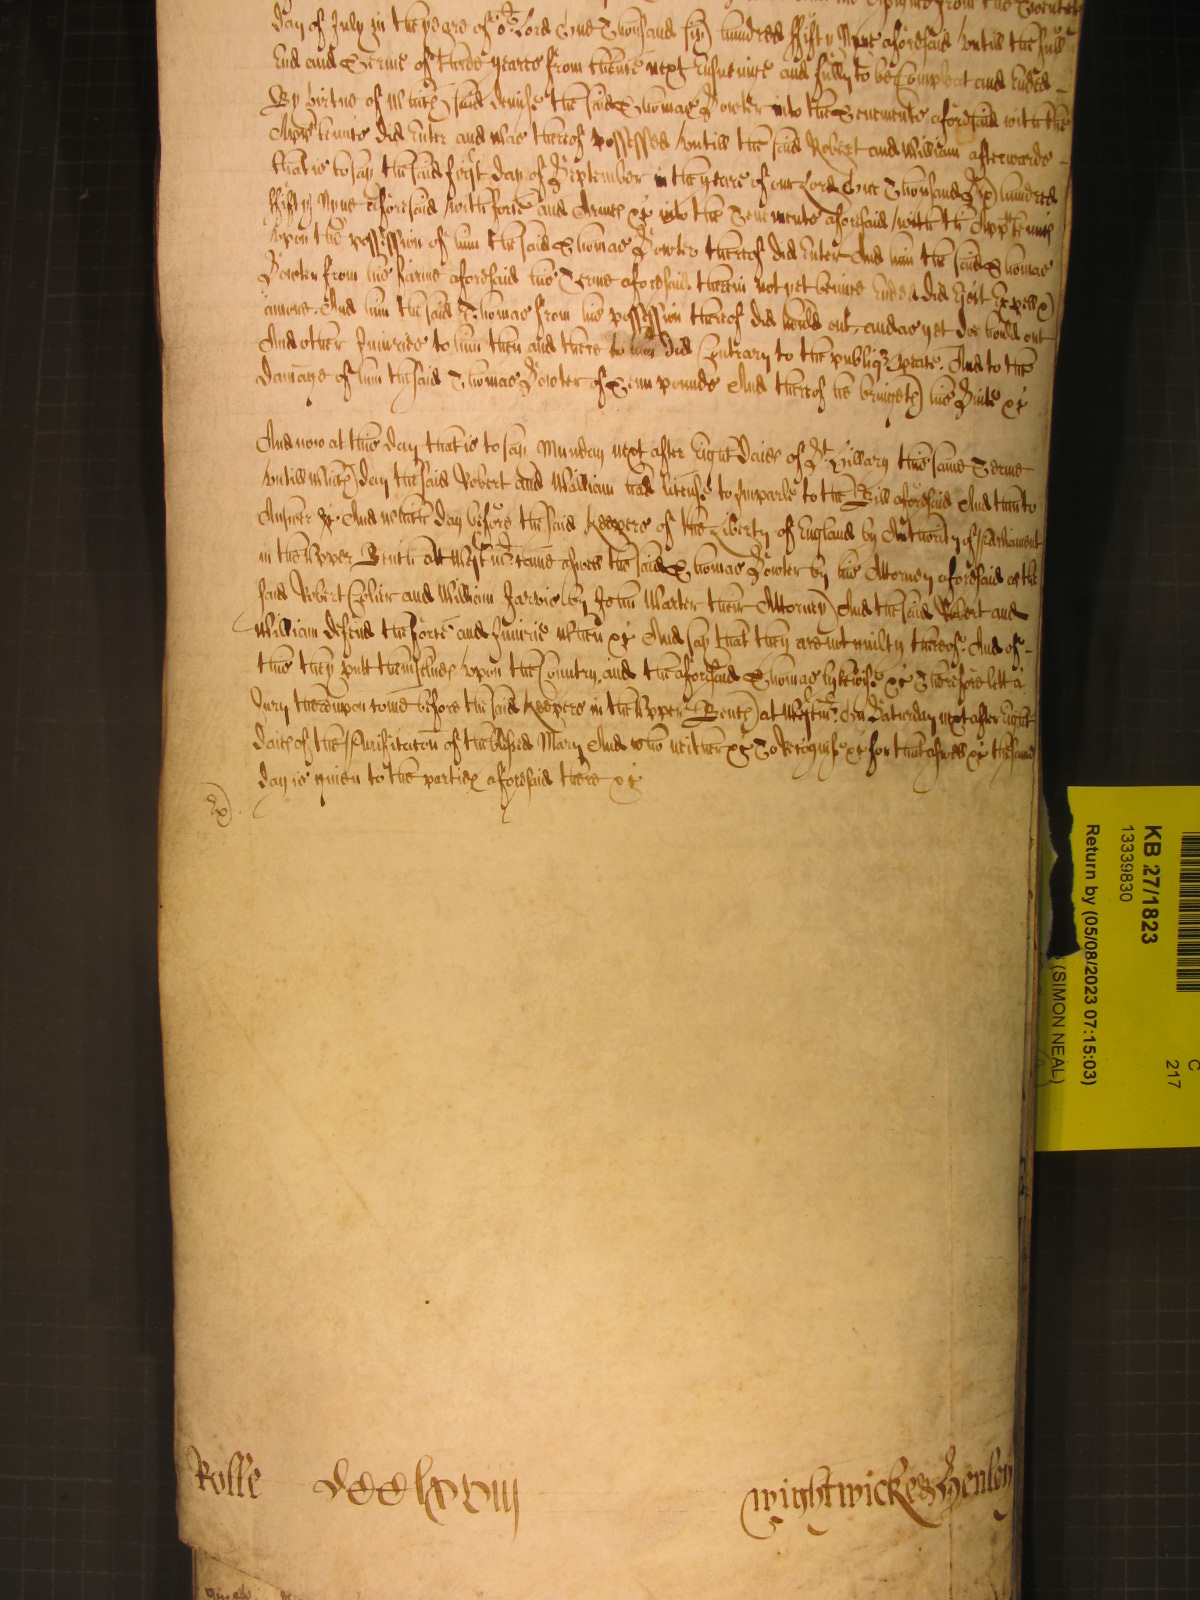 day of July in the yeare of or Lord One Thousand six hundred ffifty Nyne aforesaid untill the full
End and Terme of three yeares from thence next Ensueinge and fully to be Compleat and Ended
By virtue of which said demise the said Thomas Fowler into the Tenements aforesaid with the
Apprtennces did Enter and was thereof possessed untill the said Robert and William afterwards
that is to say the said first day of September in the yeare of our Lord One Thousand Six hundred
ffifty Nyne aforesaid with force and Armes &c into the Tenements aforesaid with th Apprtennces
upon the possession of him the said Thomas Fowler thereof did Enter And him the said Thomas
Fowler from his farme aforesaid his Terme aforesaid therein not yet beinge Ended did Eject Expell &
amove. And him the said Thomas from his possession thereof did hould out, and as yet doe hould out
And other Iniuries to him then and there did Contrary to the publiq peace. And to the
damage of him the said Thomas Fowler of Tenn pounds And thereof he bringeth his Suite &c
And now at this day that is to say Munday next after Eight daies of St. Hillary this same Terme
untill which day the said Robert and William had license to Imparle to the Bill aforesaid And then to
Answer &c And which day before the said Keepers of the Liberty of England by Authority of Parliament
in the Upper Bench att Westmr. came aswell the said Thomas Fowler by his Attorney aforesaid as the
said Robert Collier and William Jarvis by John Marter their Attorney And the said Robert and
William defend the force and Iniurie when &c And say that they are not guilty thereof. And of
this they putt themselues upon the Country, and the aforesaid Thomas lykewise &c Therefore lett a
Jury thereupon come before the said Keepers in the Upper Bench at Westmr. on Saturday next after Eight
daies of the Purificacon of the blessed Mary And who neither &c To Recognise &c for that aswell &c the same
day is given to the parties aforesaid there &c
Rolle DCClxxiii Wightwicke & Henley
KB 27/1823
13339830
Return by (05/08/2023 07:15:03)
(SIMON NEAL)
C
217